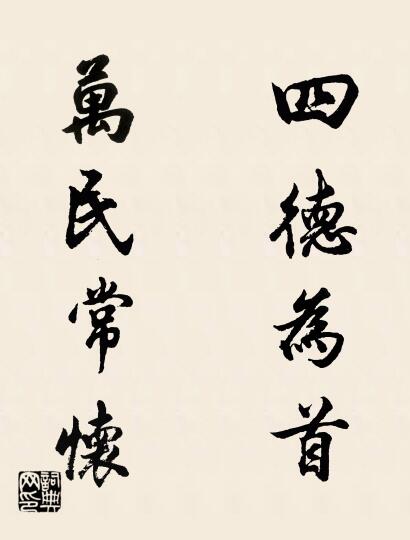 四德為首
萬民常懷
詞典網印